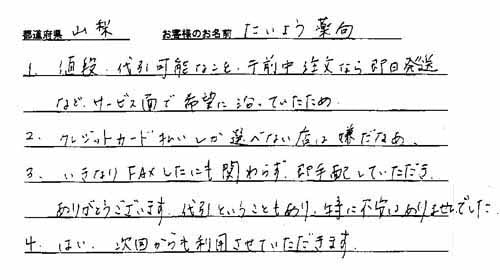 都道府県 山梨 お客様のお名前 たいよう薬局
1. 値段、代引可能なこと、午前中注文なら即日発送
など、サービス面で希望に沿っていたため.
2. クレジットカード払いしか選べない店は嫌だなあ、
3. いきなりFAXしたにも関わらず、即手配していただき、
ありがとうございます. 代引ということもあり、特に不安はありませんでした.
4. はい、次回からも利用させていただきます.